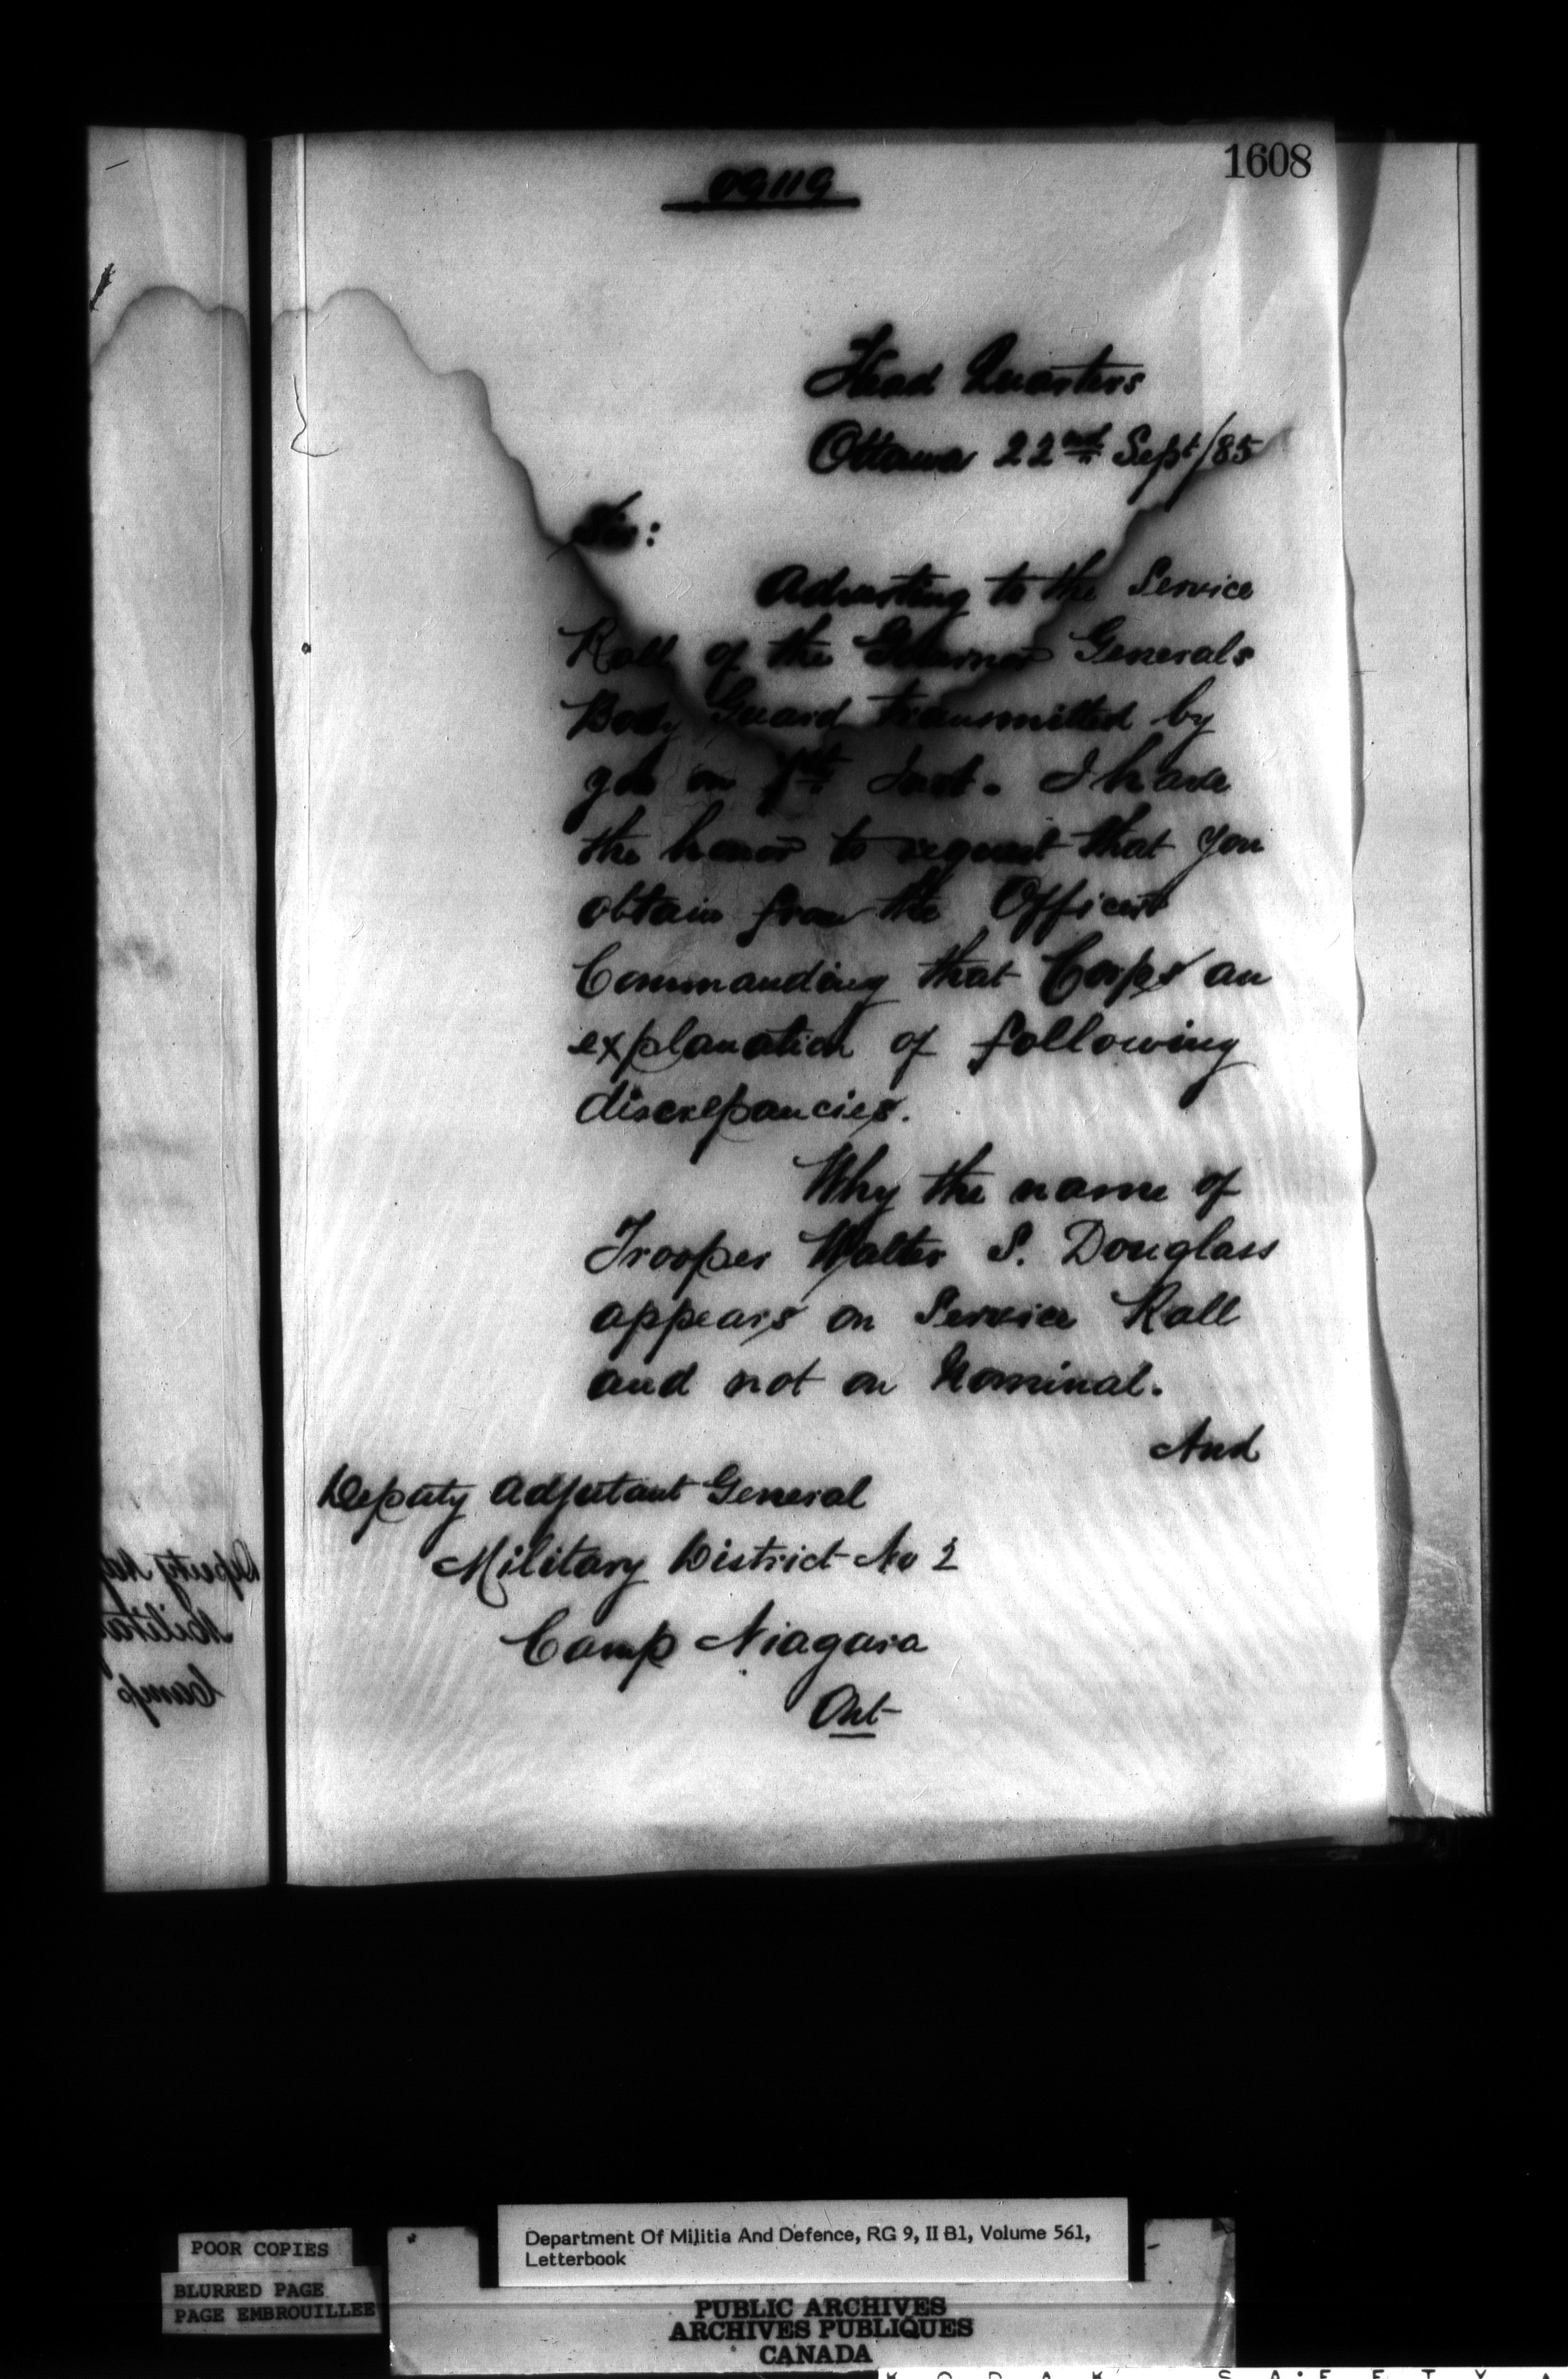 1608
09119
Head Quarters
Ottawa 22nd Sept/85
Sir:
Adverting to the Service
Roll of the Governor Generals
Body Guard transmitted by
you on Inst. I have
the honor to request that you
obtain from the Officer
Commanding that Corps an
explanation of following
discrepancies.
Why the name of
Trooper Walter S. Douglass
appears on Service Roll
and not on Nominal.
And
Deputy Adjutant General
Military District No 2
Camp Niagara
Ont
POOR COPIES
BLURRED PAGE
PAGE EMBROUILLEE
Department Of Militia And Defence, RG 9, II B1, Volume 561,
Letterbook
PUBLIC ARCHIVES
ARCHIVES PUBLIQUES
CANADA
KODAK SAFETY